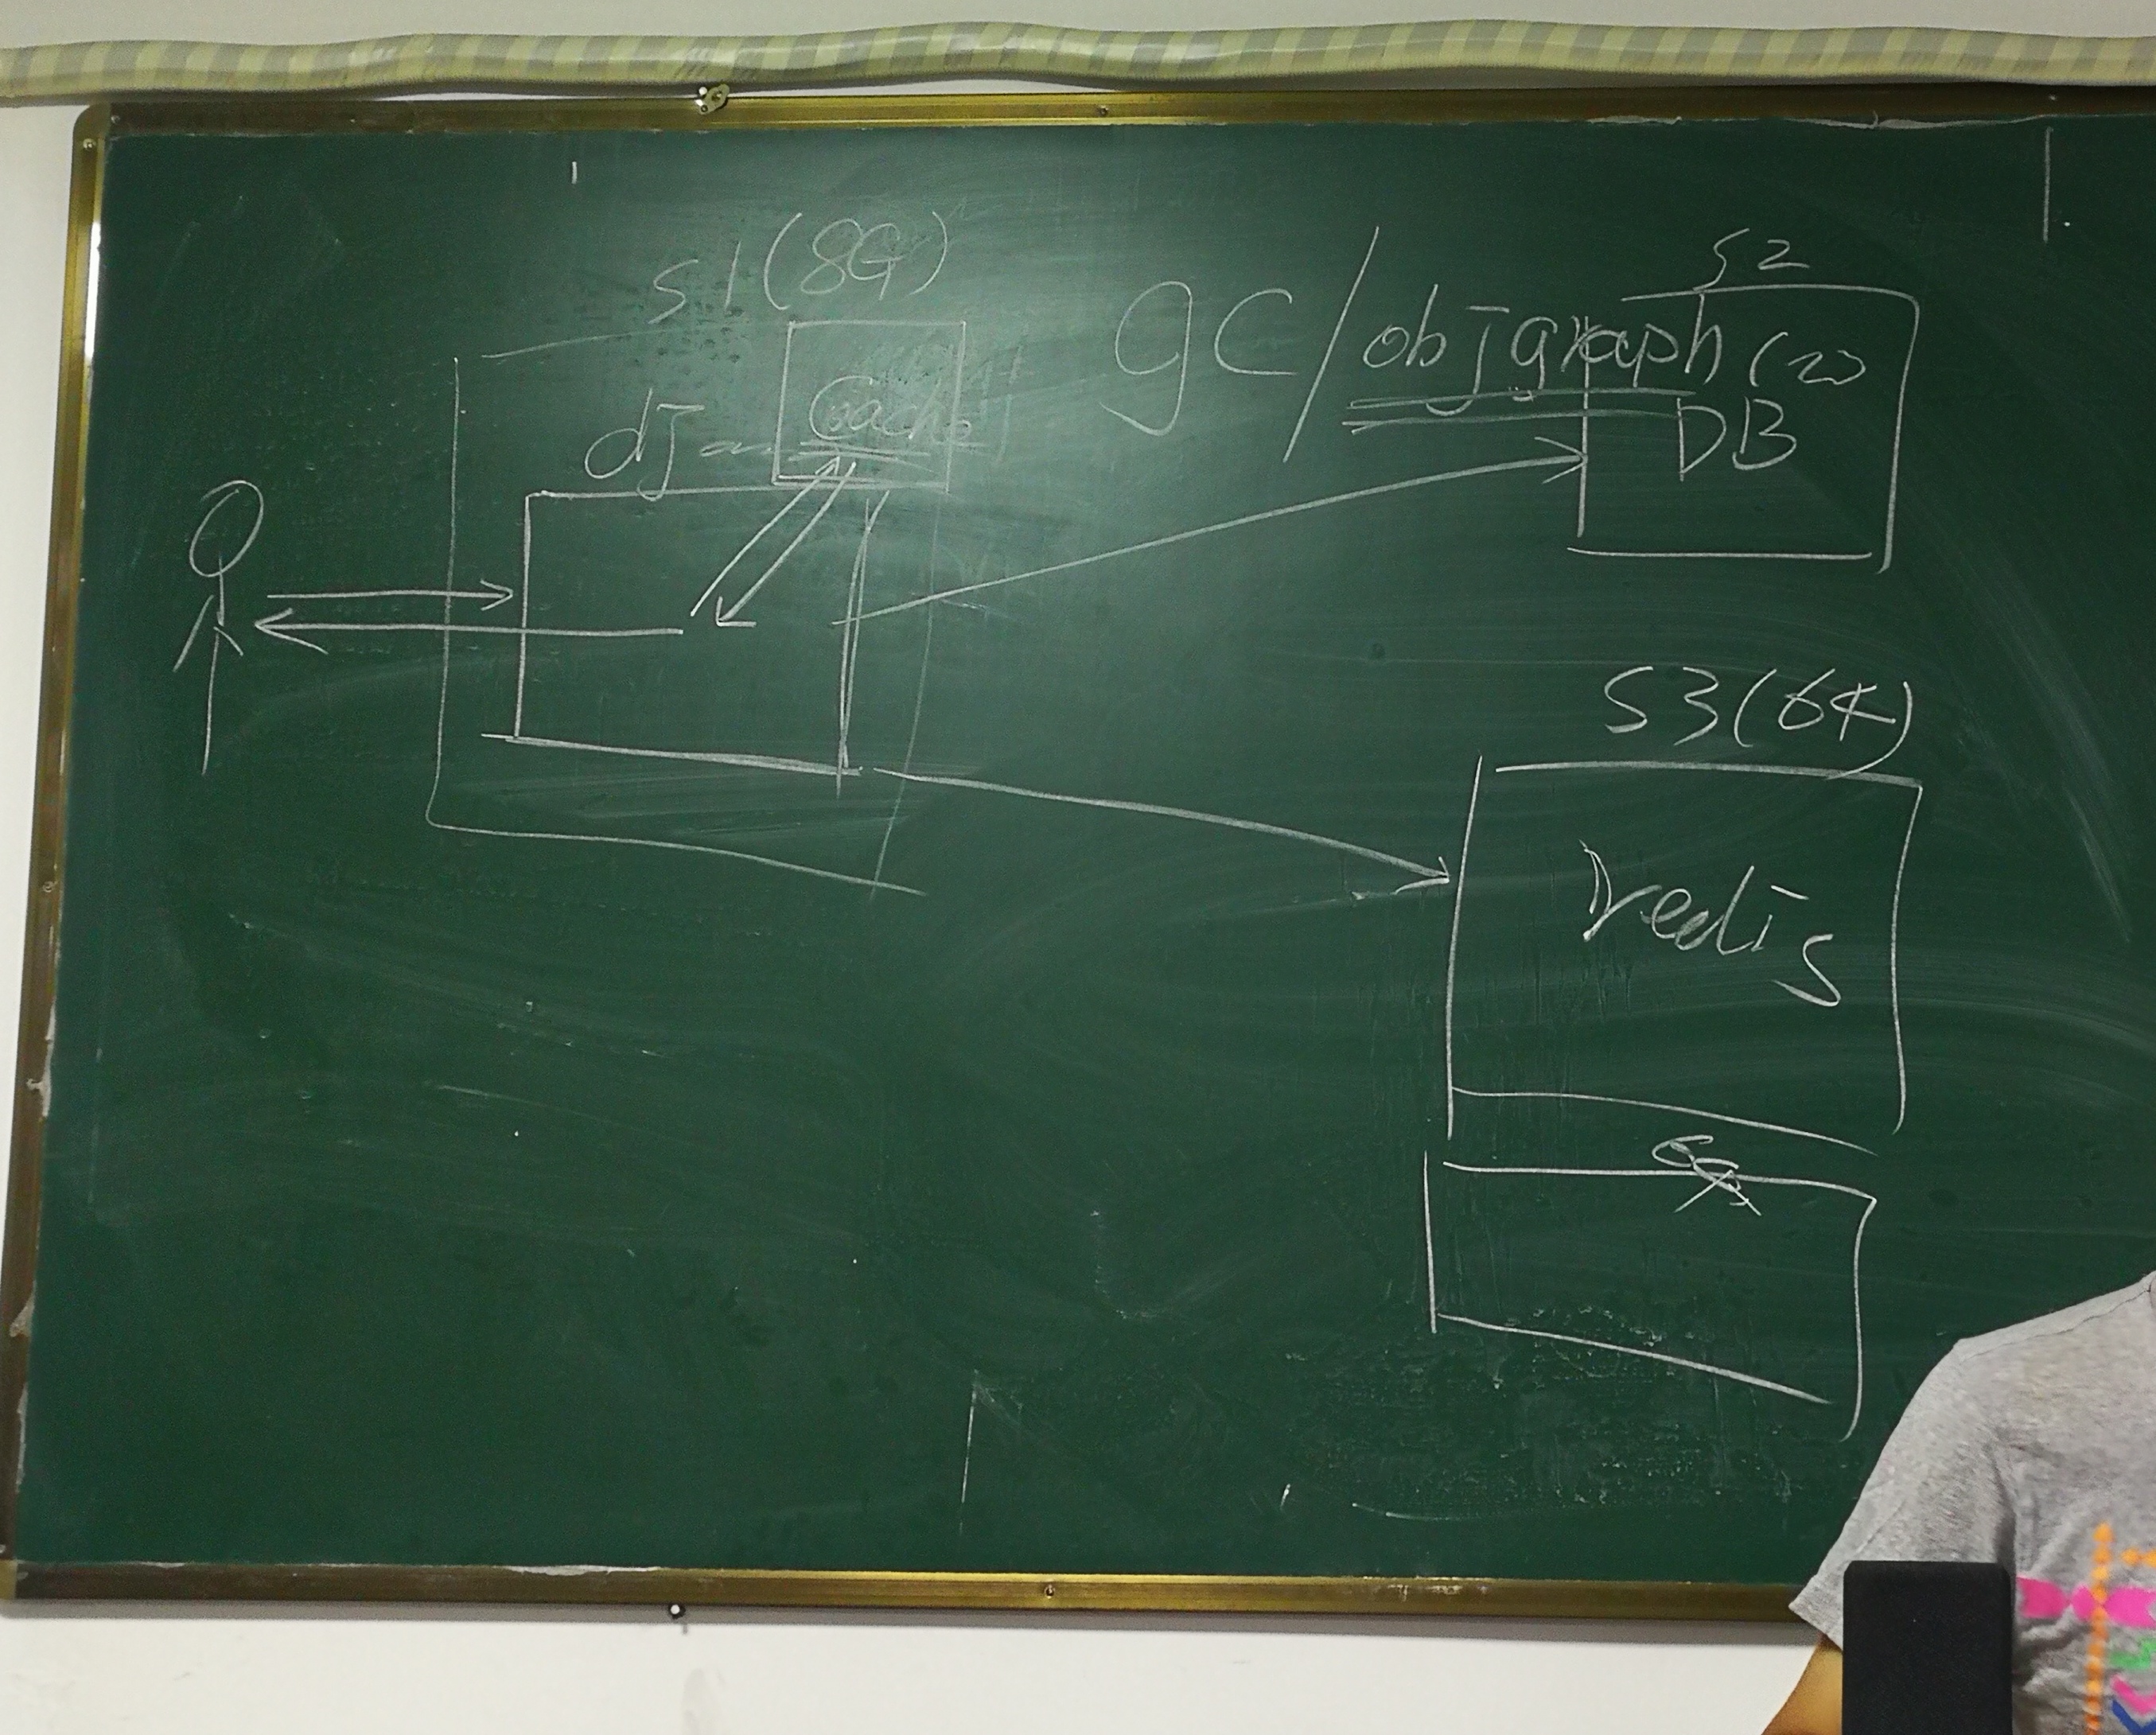 S1(8G)
Cache
gc/objgraph
S2
DB
S3(64)
redis